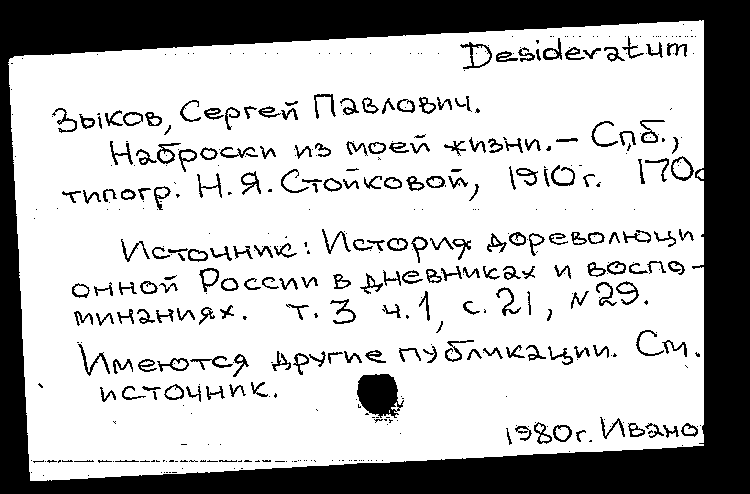 Desideratum
Зыков, Сергей Павлович.
Наброски из моей жизни. — Спб.,
типогр. Н.Я. Стойковой, 1910г. 170с
Источник: История дореволюци-
онной России в дневниках и воспо-
минаниях. Т. 3 ч. 1, с. 21, N 29.
Имеются другие публикации. См.
источник.
1980г. Ивано